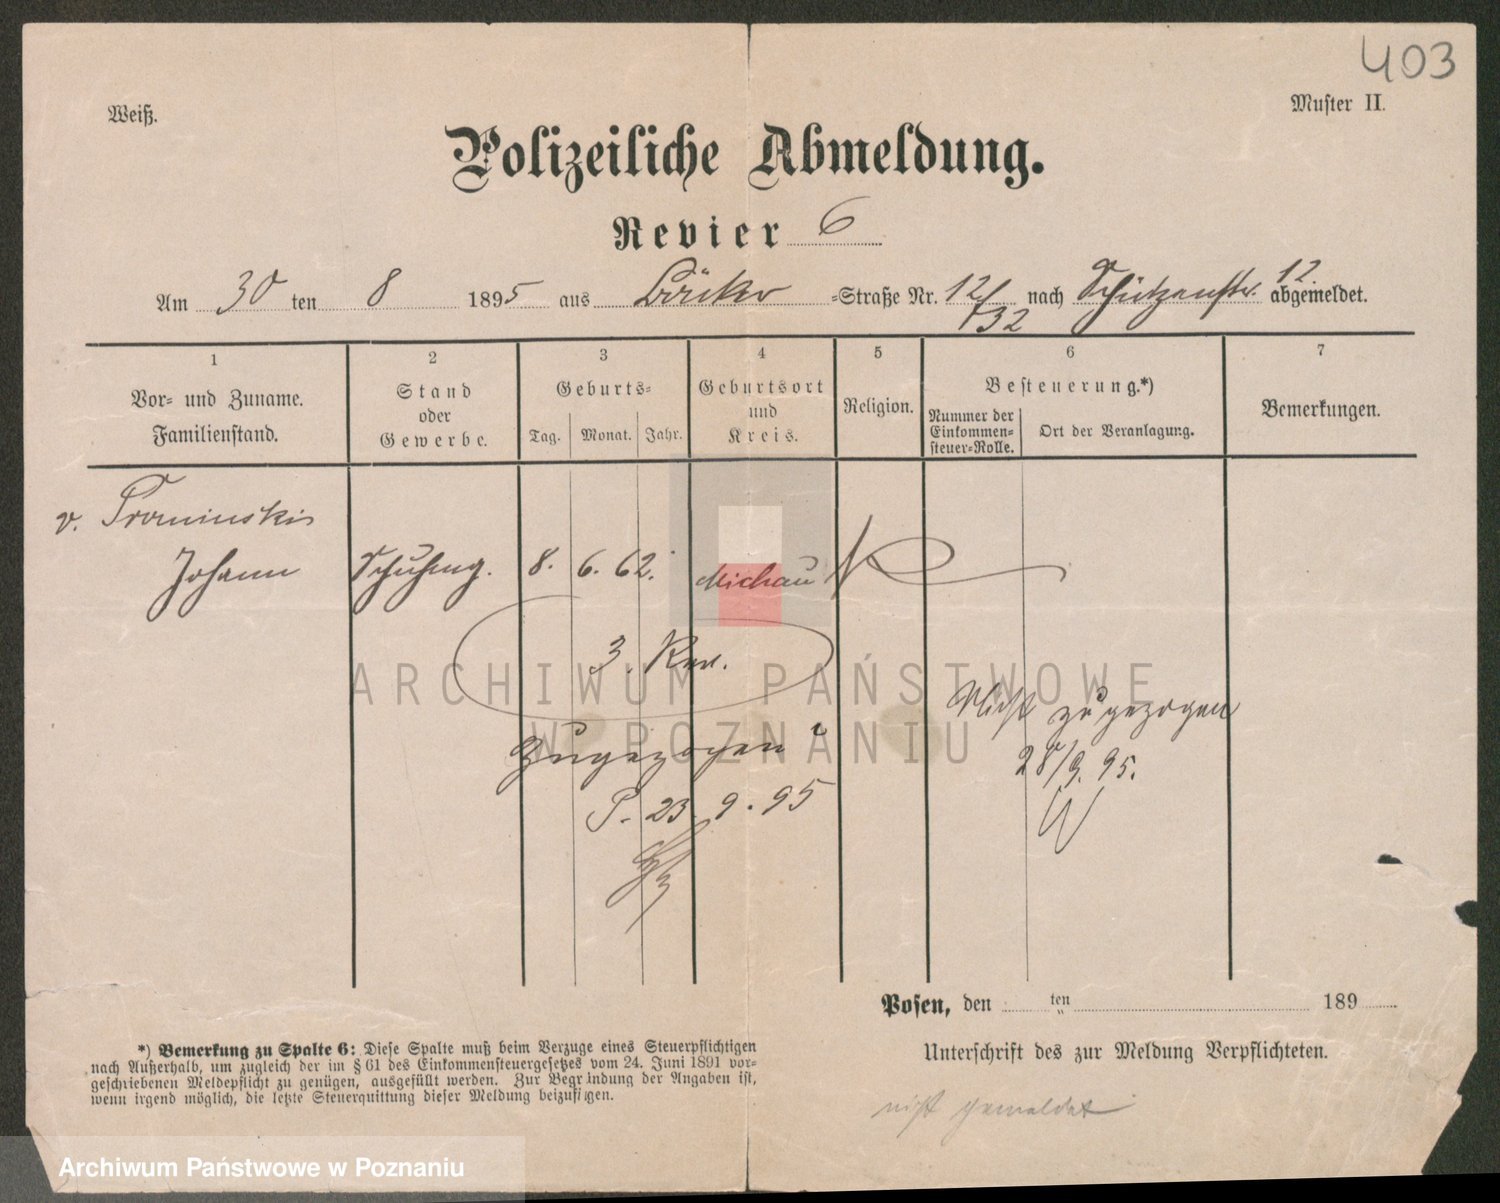 403
Weiß.
Muster II.
Polizeiliche Abmeldung.
Revier 6
Am 30 ten 8 1895 aus Bäcker =Straße Nr. 12/32 nach Schützenstr. 12 abgemeldet.
1 2 3 4 5 6 7
Vor- und Zuname. Familienstand.
Stand oder Gewerbe.
Geburts=
Tag. Monat. Jahr.
Geburtsort und Kreis.
Religion.
Besteuerung.*)
Nummer der Einkommen=steuer=Rolle.
Ort der Veranlagung.
Bemerkungen.
v. Prominski
Johann Schuhmg. 8. 6. 62. Michau K
3. Rev.
ARCHIWUM PAŃSTWOWE
W POZNANIU
Nicht zugezogen
28/9. 95.
Zugezogen
P. 23. 9. 95
Posen, den ten 189
*) Bemerkung zu Spalte 6: Diese Spalte muß beim Verzuge eines Steuerpflichtigen
nach Außerhalb, um zugleich der im § 61 des Einkommensteuergesetzes vom 24. Juni 1891 vor=
geschriebenen Meldepflicht zu genügen, ausgefüllt werden. Zur Begründung der Angaben ist,
wenn irgend möglich, die letzte Steuerquittung dieser Meldung beizufügen.
Unterschrift des zur Meldung Verpflichteten.
nicht gemeldet
Archiwum Państwowe w Poznaniu